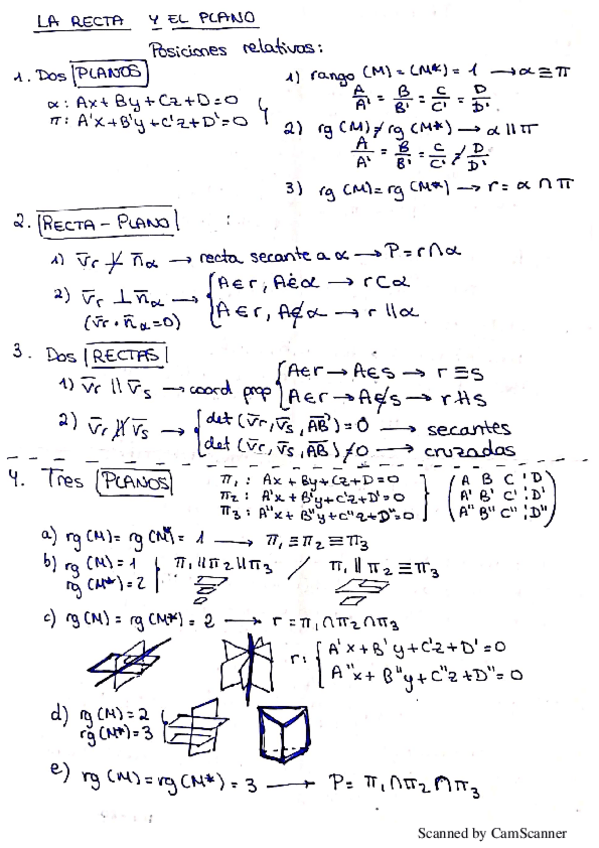 LA RECTA Y EL PLANO
Posiciones relativas:
1. Dos PLANOS
α: Ax+By+Cz+D=0
π: A'x+B'y+C'z+D'=0
1) rango (M)=(M*)=1 → α≡π
A/A' = B/B' = C/C' = D/D'
2) rg(M)≠rg(M*) → α∥π
A/A' = B/B' = C/C' ≠ D/D'
3) rg(M)=rg(M*) → r=α∩π
2. RECTA-PLANO
1) v̄r ⊥̸ n̄α → recta secante a α → P=r∩α
2) v̄r ⊥ n̄α → { A∈r, A∈α → r⊂α
(v̄r·n̄α=0) A∈r, A∉α → r∥α
3. Dos RECTAS
1) v̄r ∥ v̄s → coord prop { A∈r → A∈s → r≡s
A∈r → A∉s → r∥s
2) v̄r ∦ v̄s → { det(v̄r, v̄s, AB)=0 → secantes
det(v̄r, v̄s, AB)≠0 → cruzadas
4. Tres PLANOS
π1: Ax+By+Cz+D=0
π2: A'x+B'y+C'z+D'=0
π3: A"x+B"y+C"z+D"=0
A B C D
A' B' C' D'
A" B" C" D"
a) rg(M)=rg(M*)=1 → π1≡π2≡π3
b) rg(M)=1 π1∥π2∥π3 / π1∥π2≡π3
rg(M*)=2
c) rg(M)=rg(M*)=2 → r=π1∩π2∩π3
r: { A'x+B'y+C'z+D'=0
A"x+B"y+C"z+D"=0
d) rg(M)=2
rg(M*)=3
e) rg(M)=rg(M*)=3 → P=π1∩π2∩π3
Scanned by CamScanner